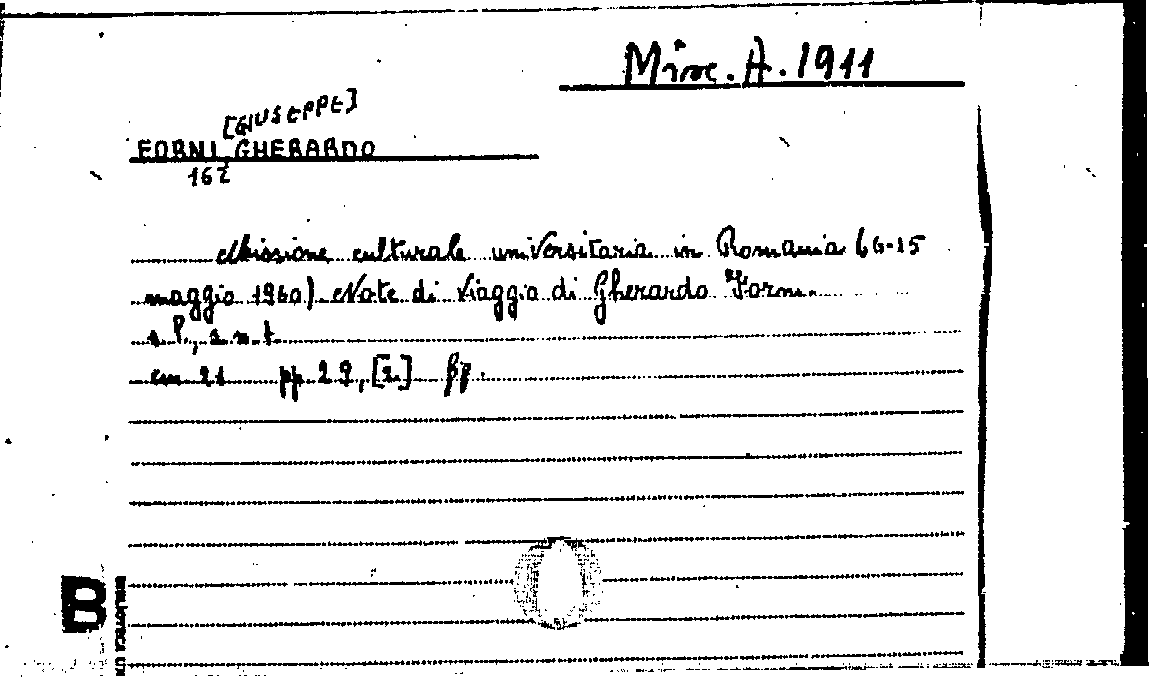 Misc. A. 1911
[GIUSEPPE]
FORNI GHERARDO
162
Missione culturale universitaria in Romania (6-15
maggio 1960) Note di viaggio di Gherardo Forni.
s.l., s.n.t.
cm 21 pp 29, [2.]
BIBLIOTECA